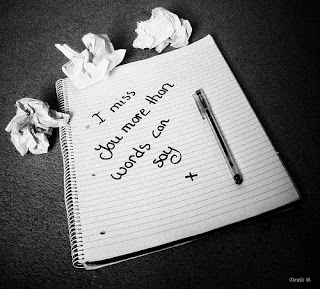 I miss
You more than
words can
say
x
Denis B.